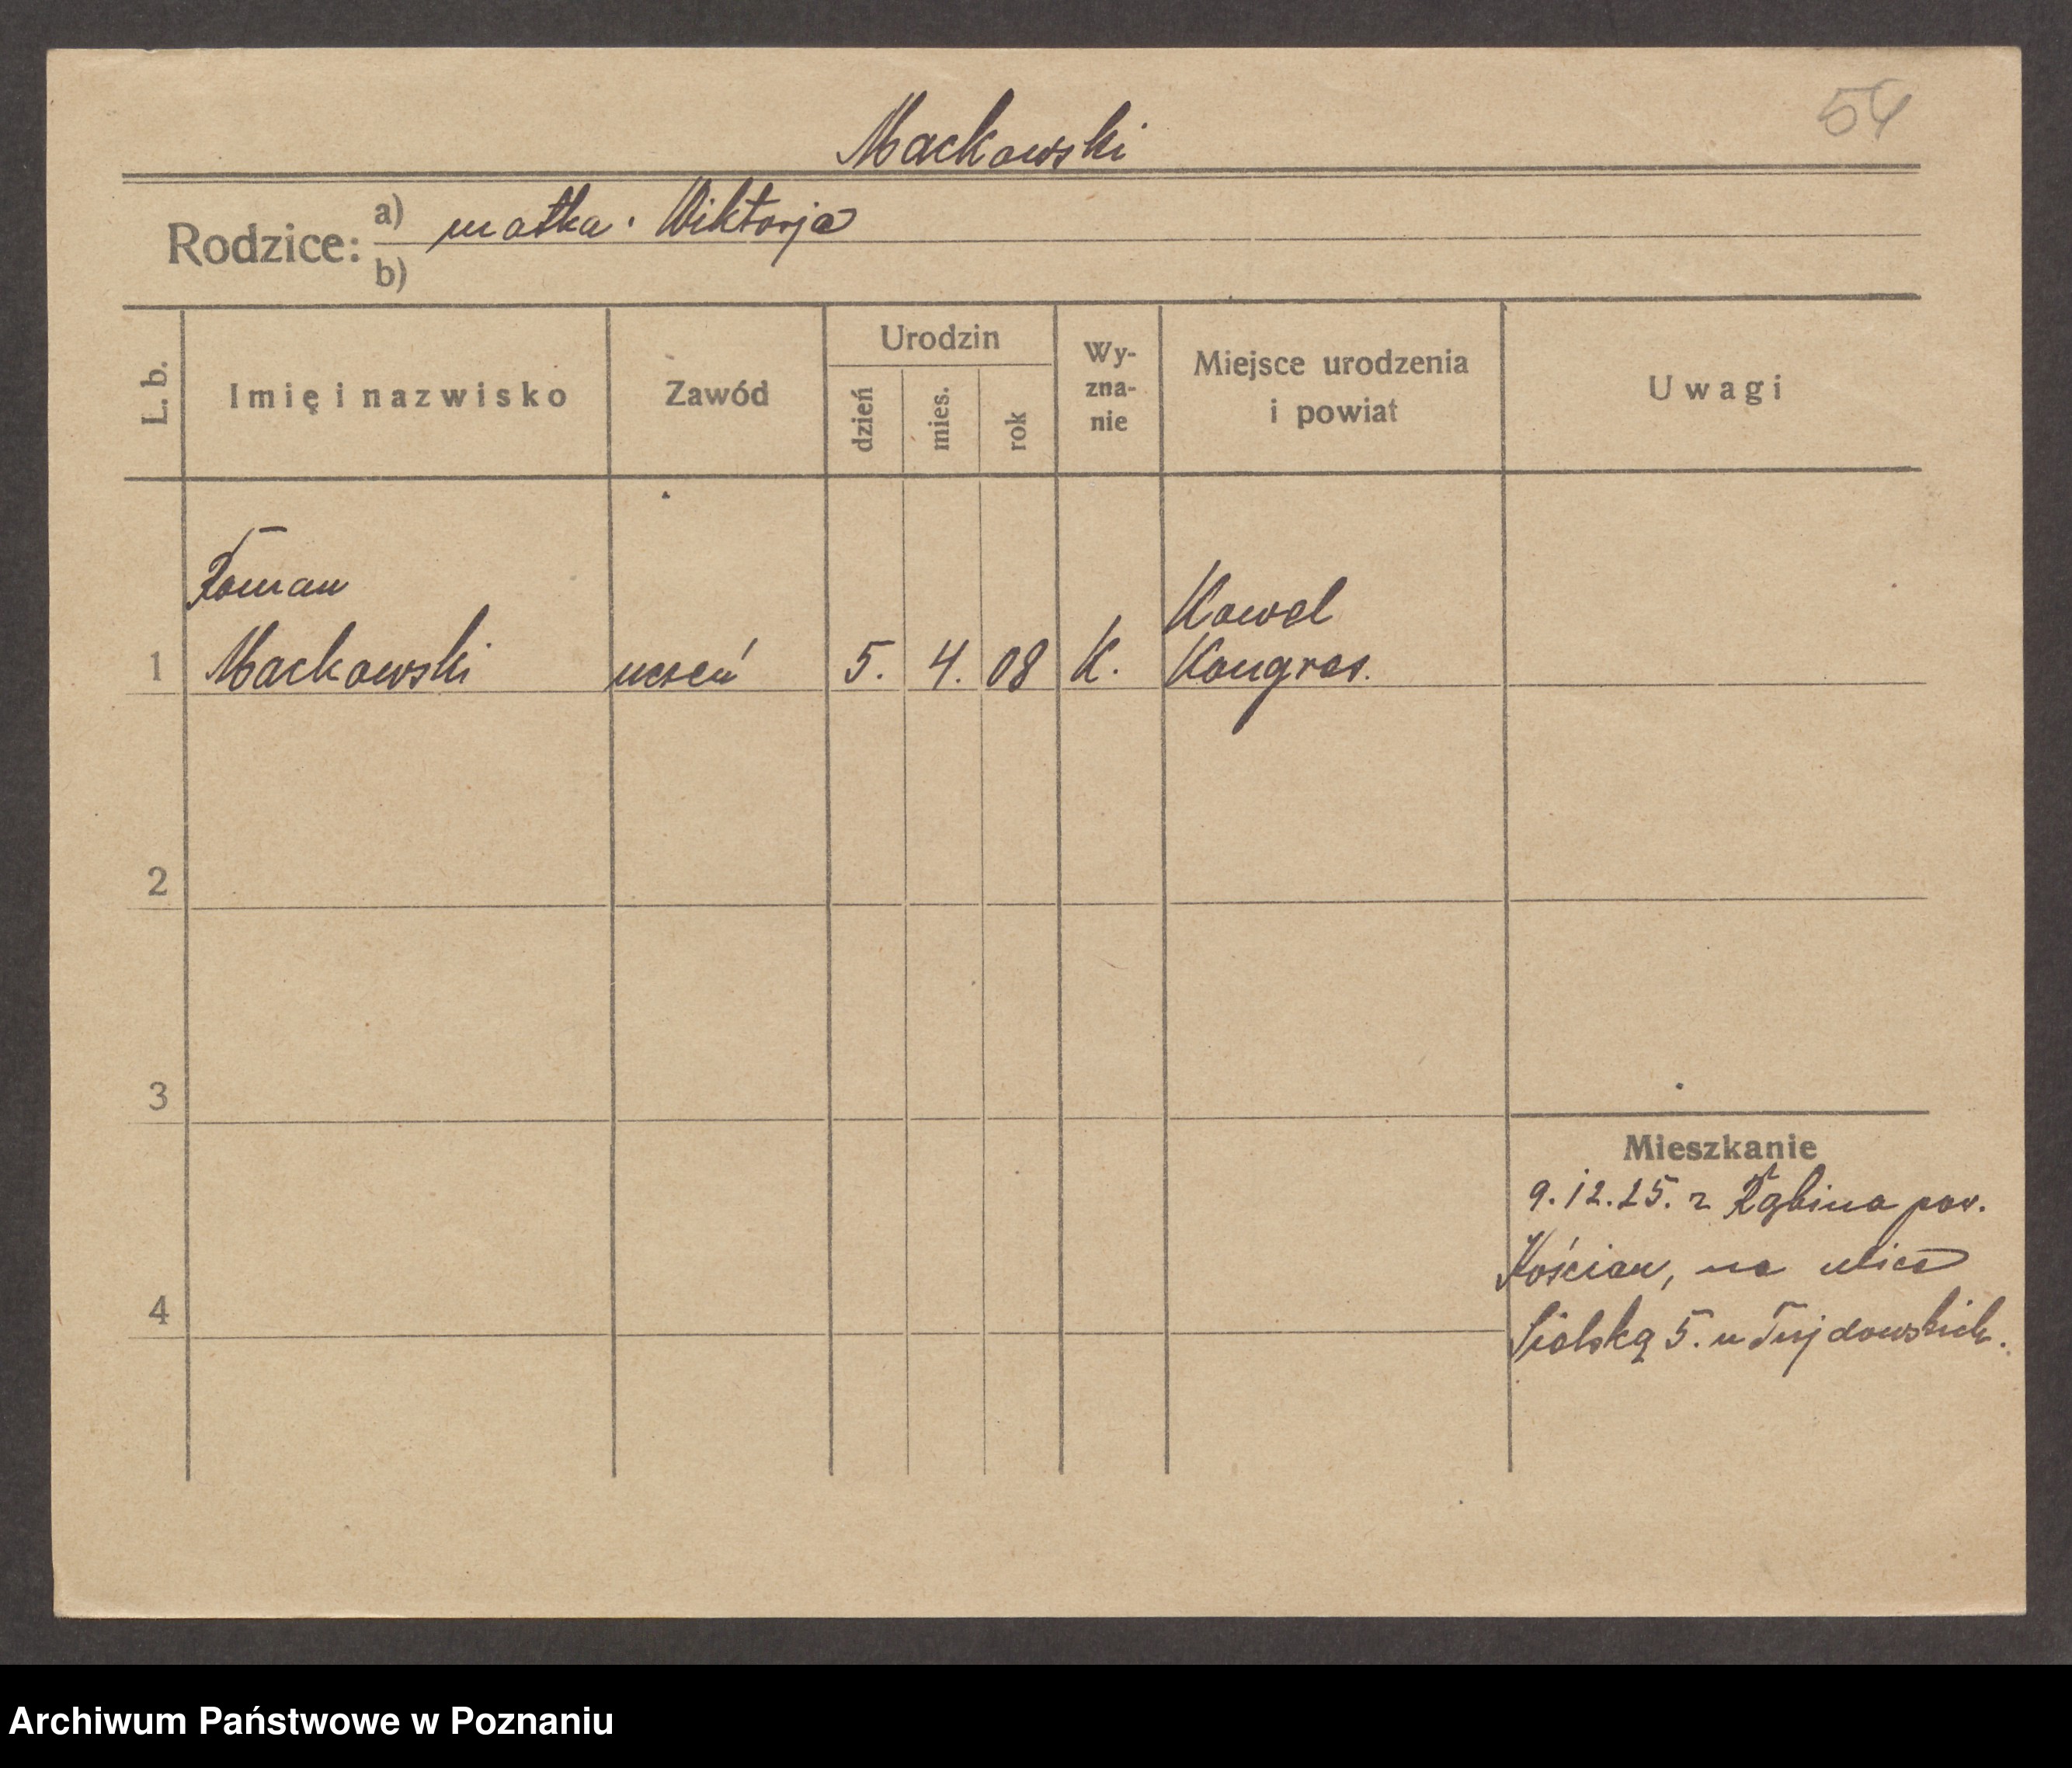 54
Mackowski
Rodzice: a) matka · Wiktorja
b)
L. b. Imię i nazwisko Zawód Urodzin dzień mies. rok Wy-zna-nie Miejsce urodzenia i powiat Uwagi
Roman Kowel
1 Mackowski uczeń 5. 4. 08 K. Kongres.
2
3
Mieszkanie
9.12.25. z Rąbina pow.
Kościan, na ulicę
4
Sielską 5. u Tujdowskich.
Archiwum Państwowe w Poznaniu